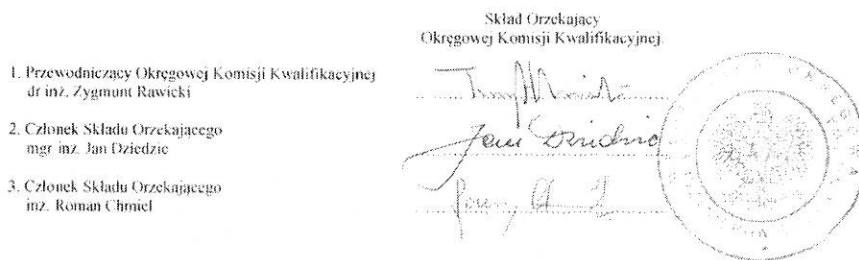 Skład Orzekający
Okręgowej Komisji Kwalifikacyjnej
1. Przewodniczący Okręgowej Komisji Kwalifikacyjnej
dr inż. Zygmunt Rawicki
2. Członek Składu Orzekającego
mgr inż. Jan Dziedzic
Jan Dziedzic
3. Członek Składu Orzekającego
inż. Roman Chmiel